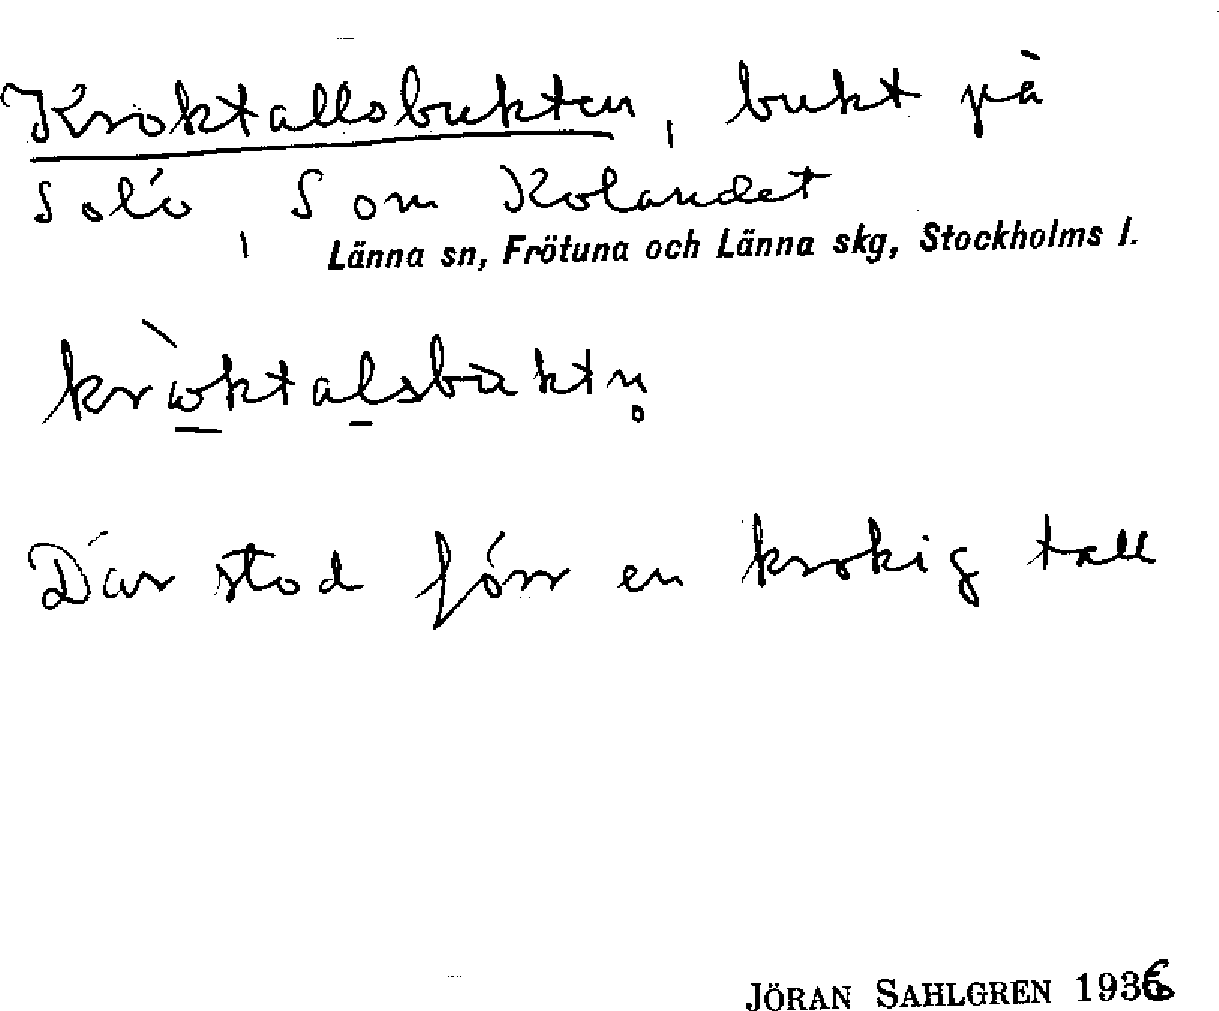 Kroktallsbukten, bukt på
Solö, S om Kolandet
Länna sn, Frötuna och Länna skg, Stockholms l.
kròktalsbuktn̥
Där stod förr en krokig tall
JÖRAN SAHLGREN 1936